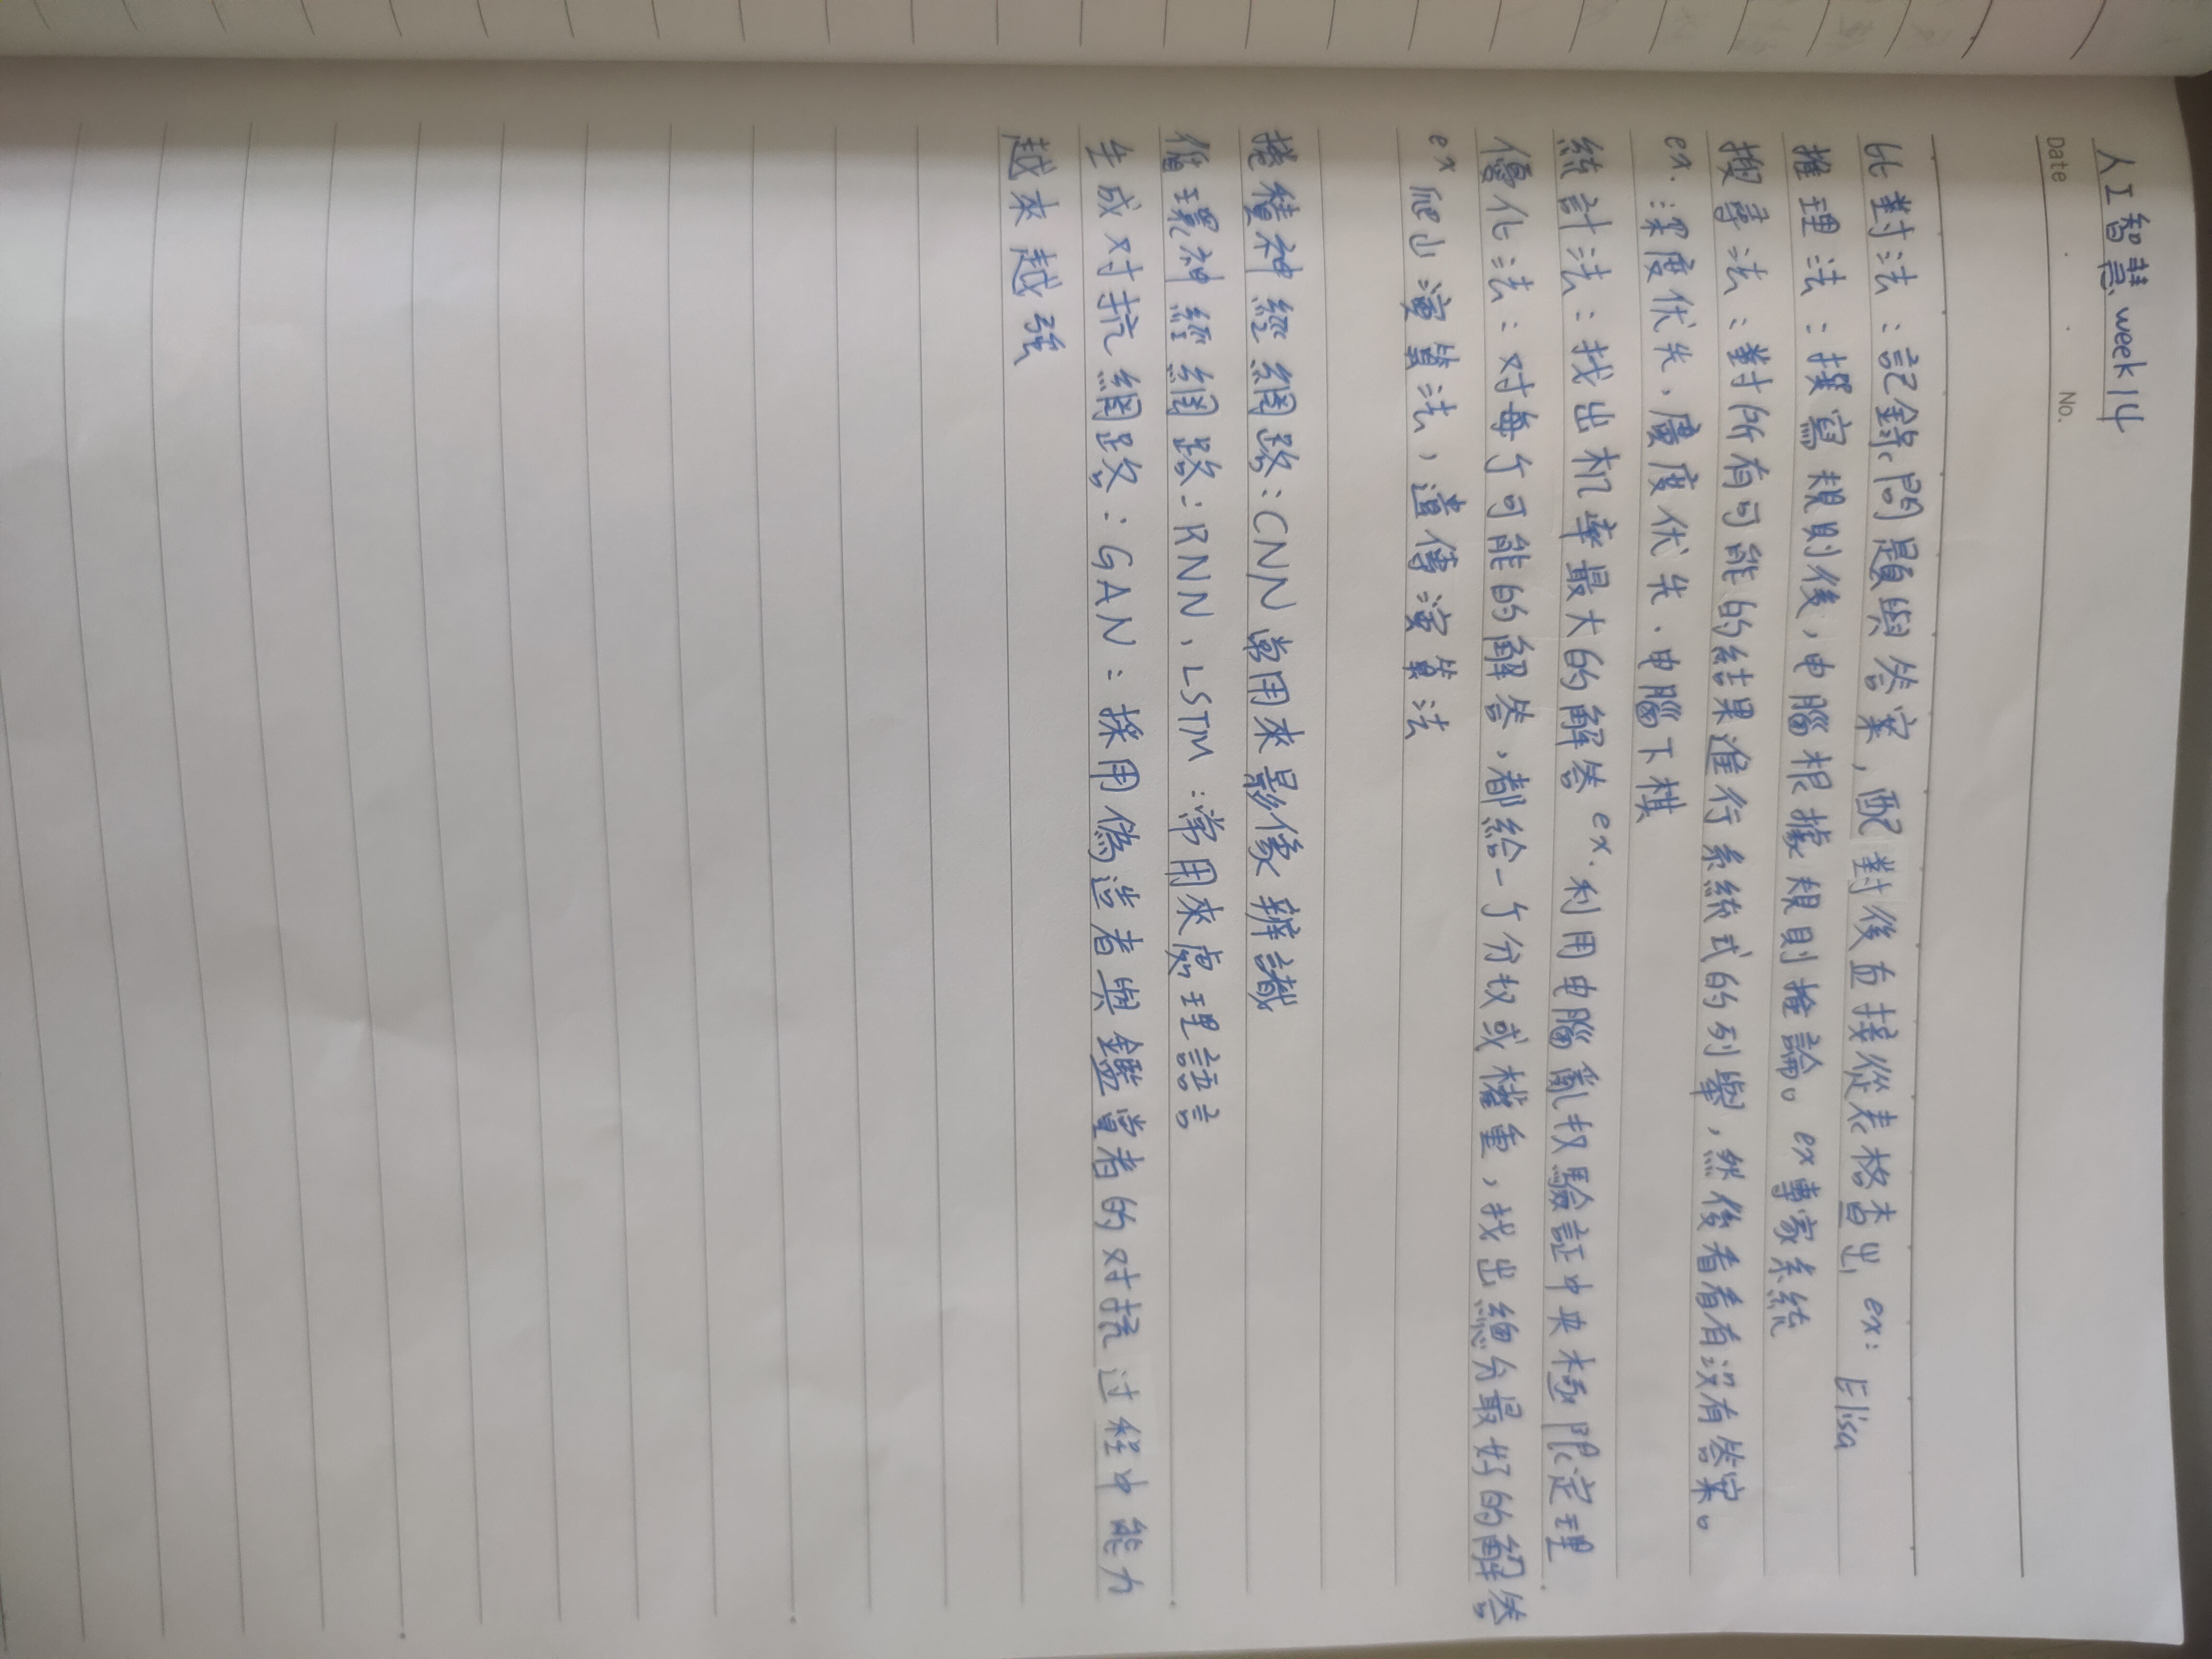 人工智慧 week 14
Date . . No.
比對法：記錄問題與答案，配對後直接從表格查出 ex： Elisa
推理法：撰寫規則後，电腦根據規則推論。ex 專家系統
搜尋法：對所有可能的結果進行系統式的列舉，然後看看有沒有答案。
ex. 深度优先、廣度优先、电腦下棋
統計法：找出机率最大的解答 ex. 利用电腦亂权驗証中央極限定理
優化法：对每个可能的解答，都給一个分权或權重，找出總分最好的解答
ex 爬山演算法，遺傳演算法
捲積神經網路：CNN 常用來影像辨識
循環神經網路：RNN、LSTM：常用來處理語言
生成对抗網路：GAN：採用偽造者與鑑賞者的对抗过程中能力
越來越強